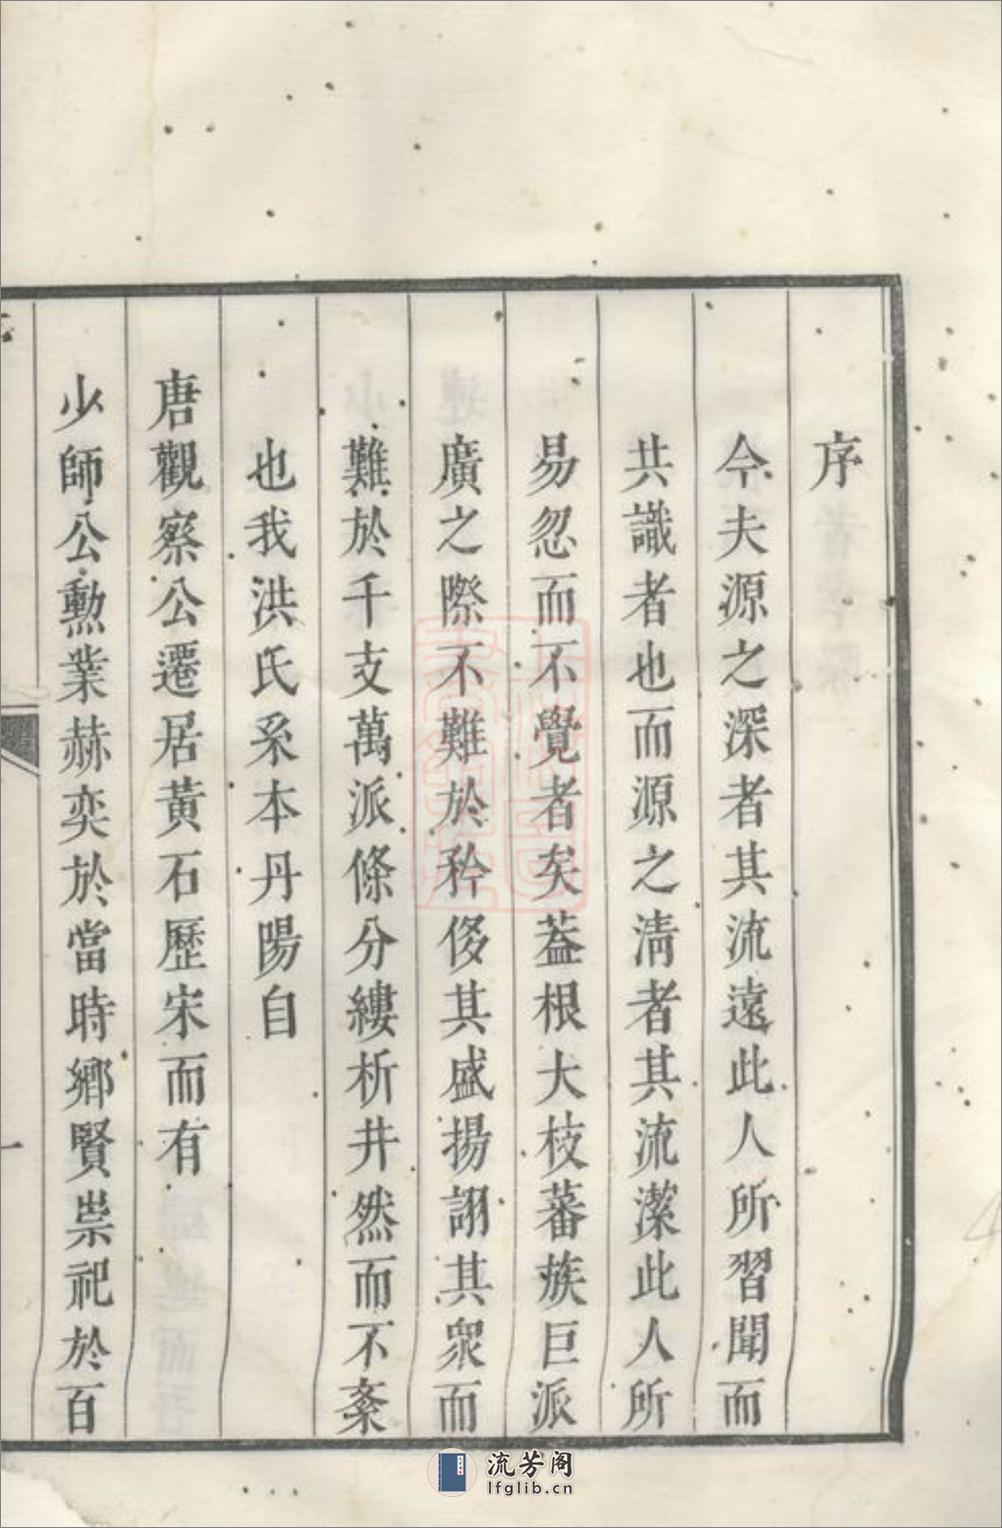 序
今夫源之深者其流遠此人所習聞而
共識者也而源之淸者其流潔此人所
易忽而不覺者矣葢根大枝蕃族巨派
廣之際不難於矜侈其盛揚詡其衆而
難於千支萬派條分縷析井然而不紊
也我洪氏系本丹陽自
唐觀察公遷居黃石歷宋而有
少師公勲業赫奕於當時鄉賢崇祀於百
一
流芳阁
lfglib.cn